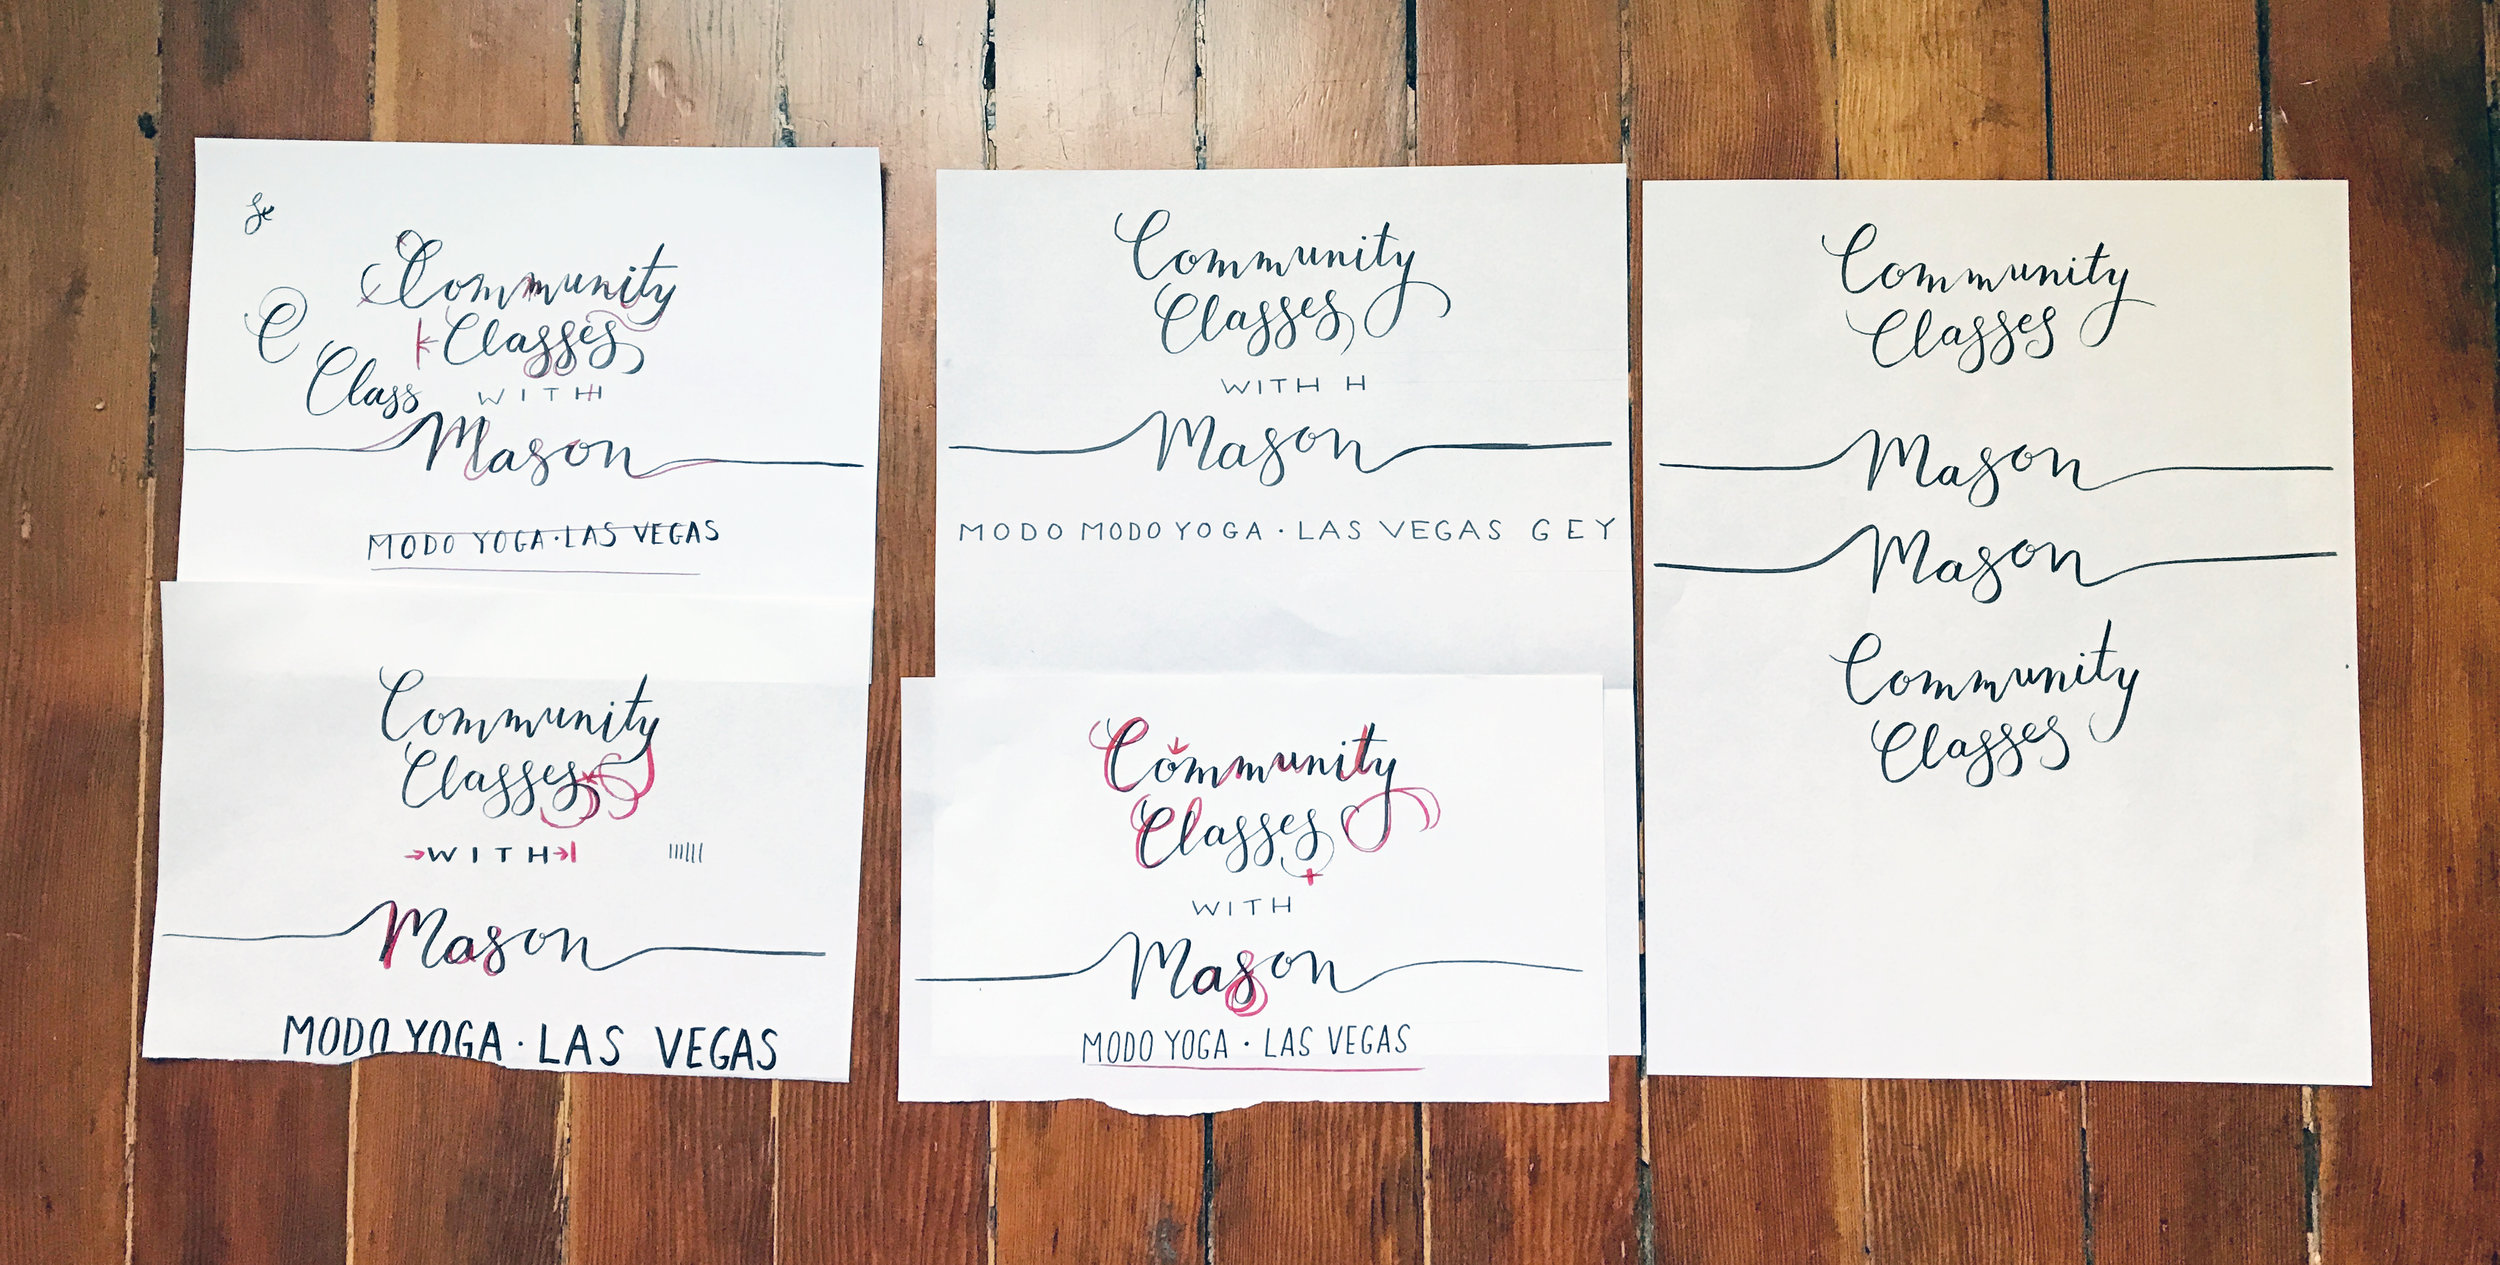 Se
Community
C
Classes
Class
WITH
Mason
MODO YOGA · LAS VEGAS
Community
Classes
WITH
Mason
MODO YOGA · LAS VEGAS
Community
Classes
WITH H
Mason
MODO MODO YOGA · LAS VEGAS G E Y
Community
Classes
WITH
Mason
MODO YOGA · LAS VEGAS
Community
Classes
Mason
Mason
Community
Classes